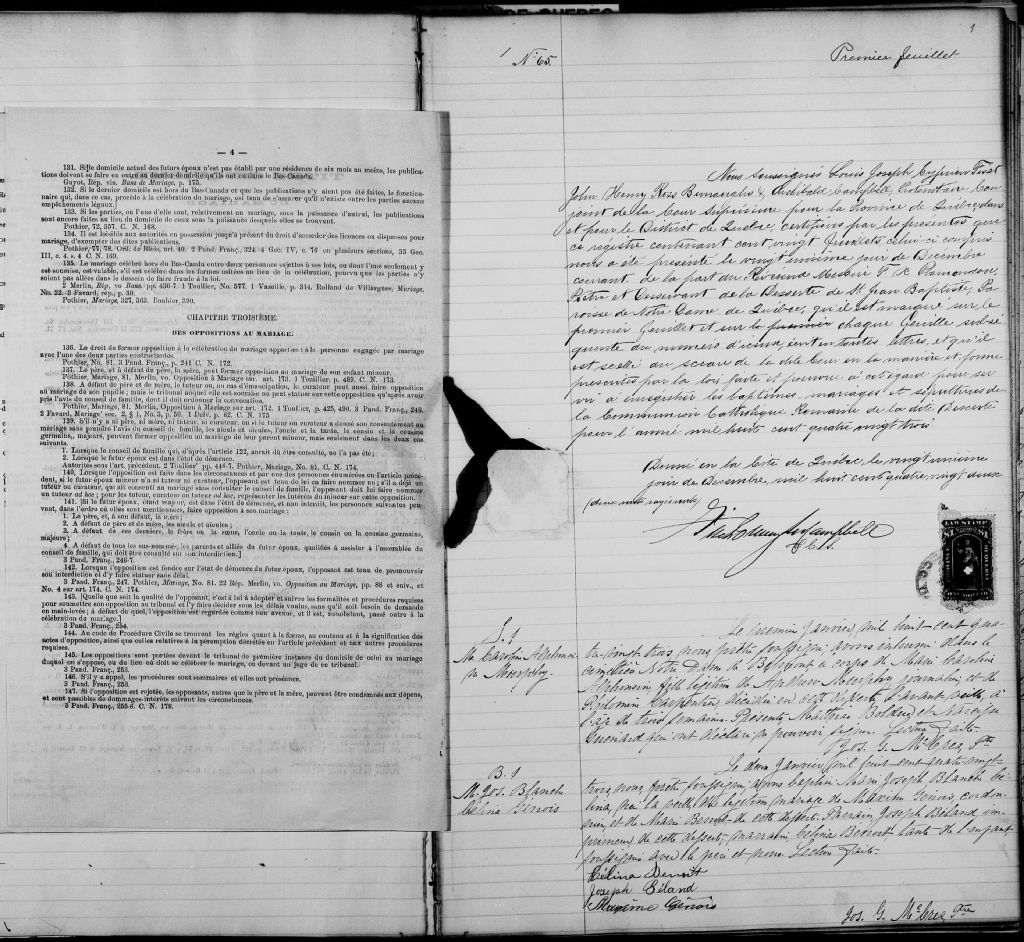 — 4 —
131. Si le domicile actuel des futurs époux n'est pas établi par une résidence de six mois au moins, les publica-
tions doivent se faire en outre au dernier domicile qu'ils ont eu dans le Bas-Canada.
Guyot, Rép. vis. Bans de Mariage, p. 175.
132. Si le dernier domicile est hors du Bas-Canada et que les publications n'y aient pas été faites, le fonctionnai-
re qui, dans ce cas, procède à la célébration du mariage, est tenu de s'assurer qu'il n'existe entre les parties aucuns
empêchements légaux.
133. Si les parties, ou l'une d'elle sont, relativement au mariage, sous la puissance d'autrui, les publications
sont encore faites au lieu du domicile de ceux sous la puissance desquels elles se trouvent.
Pothier, 72, 357. C. N. 168.
134. Il est loisible aux autorités en possession jusqu'à présent du droit d'accorder des licences ou dispenses pour
mariage, d'exempter des dites publications.
Pothier, 77, 78. Ord. de Blois, art. 40. 2 Pand. Franç., 324. 4 Geo. IV, c. 76 en plusieurs sections, 35 Geo.
III, c. 4. s. 4 C. N. 169.
135. Le mariage célébré hors du Bas-Canada entre deux personnes sujettes à ses lois, ou dont l'une seulement y
est soumise, est valable, s'il est célébré dans les formes usitées au lieu de la célébration, pourvu que les parties n'y
soient pas allées dans le dessein de faire fraude à la loi.
2 Merlin, Rép. vo Bans, pp. 436-7. 1 Toullier, No. 577. 1 Vazeille, p. 314. Rolland de Villargues, Mariage,
No. 22. 3 Favard, rép., p. 30.
Pothier, Mariage, 327, 363. Rouhier, 390.
CHAPITRE TROISIÈME.
DES OPPOSITIONS AU MARIAGE.
136. Le droit de former opposition à la célébration du mariage appartient à la personne engagée par mariage
avec l'une des deux parties contractantes.
Pothier, No. 81. 3 Pand. Franç., p. 241 C. N. 172.
137. Le père, et à défaut du père, la mère, peut former opposition au mariage de son enfant mineur.
Pothier, Mariage, 81. Merlin, vo. Opposition à Mariage sur art. 173. 1 Touillier, p. 489. C. N. 173.
138. A défaut de père et de mère, le tuteur ou, au cas d'émancipation, le curateur peut aussi faire opposition
au mariage de son pupille; mais le tribunal auquel elle est soumise ne peut statuer sur cette opposition qu'après avoir
pris l'avis du conseil de famille, dont il doit ordonner la convocation.
Pothier, Mariage, 81. Merlin, Opposition à Mariage sur art. 172. 1 Toullier, p. 425, 490. 3 Pand. Franç., 248.
2 Favard, Mariage sec. 2, § 1, No. 3, p. 59. 1 Delv. p. 62. C. N. 175
139. S'il n'y a ni père, ni mère, ni tuteur, ni curateur, ou si le tuteur ou curateur a donné son consentement au
mariage sans prendre l'avis du conseil de famille, les aïeuls et aïeules, l'oncle et la tante, le cousin et la cousine
germains, majeurs, peuvent former opposition au mariage de leur parent mineur, mais seulement dans les deux cas
suivants.
1. Lorsque le conseil de famille qui, d'après l'article 122, aurait dû être consulté, ne l'a pas été;
2. Lorsque le futur époux est dans l'état de démence.
Autorités sous l'art. précédent. 2 Touillier pp. 446-7. Pothier, Mariage, No. 81. C. N. 174.
140. Lorsque l'opposition est faite dans les circonstances et par une des personnes énumérées en l'article précé-
dent, si le futur époux mineur n'a ni tuteur ni curateur, l'opposant est tenu de lui en faire nommer un; s'il a déjà un
tuteur ou curateur, qui ait consenti au mariage sans consulter le conseil de famille, l'opposant doit lui faire nommer
un tuteur ad hoc; pour les tuteur, curateur ou tuteur ad hoc, représenter les intérêts du mineur sur cette opposition.
141. [Si le futur époux, étant majeur, est dans l'état de démence, et non interdit, les personnes suivantes peu-
vent, dans l'ordre où elles sont mentionnées, faire opposition à son mariage:
1. Le père, et, à son défaut, la mère;
2. A défaut de père et de mère, les aïeuls et aïeules;
3. A défaut de ces derniers, le frère ou la sœur, l'oncle ou la tante, le cousin ou la cousine germains,
majeurs;
4. A défaut de tous les sus-nommés, les parents et alliés du futur époux, qualifiés à assister à l'assemblée du
conseil de famille, qui doit être consulté sur son interdiction.]
3 Pand. Franç., 246-7.
142. Lorsque l'opposition est fondée sur l'état de démence du futur époux, l'opposant est tenu de promouvoir
son interdiction et d'y faire statuer sans délai.
3 Pand. Franç., 247. Pothier, Mariage, No. 81. 22 Rép. Merlin, vo. Opposition au Mariage, pp. 88 et suiv., et
No. 4 sur art 174. C. N. 174.
143. [Quelle que soit la qualité de l'opposant, c'est à lui à adopter et suivre les formalités et procédures requises
pour soumettre son opposition au tribunal et l'y faire décider sous les délais voulus, sans qu'il soit besoin de demande
en main-levée; à défaut de quoi, l'opposition est regardée comme non avenue, et il est, nonobstant, passé outre à la
célébration du mariage.]
3 Pand. Franç., 254.
144. Au code de Procédure Civile se trouvent les règles quant à la forme, au contenu et à la signification des
actes d'opposition, ainsi que celles relatives à la péremption décrétée en l'article précédent et aux autres procédures
requises.
145. Les oppositions sont portées devant le tribunal de première instance du domicile de celui au mariage
duquel on s'oppose, ou du lieu où doit se célébrer le mariage, ou devant un juge de ce tribunal.
3 Pand. Franç., 253.
146. S'il y a appel, les procédures sont sommaires et elles ont préséance.
3 Pand. Franç., 253.
147. Si l'opposition est rejetée, les opposants, autres que le père et la mère, peuvent être condamnés aux dépens,
et sont passibles de dommages-intérêts suivant les circonstances.
3 Pand. Franç., 255-6. C. N. 179.
1 No 65.
Premier feuillet
Nous Soussignés Louis Joseph Cyprien Fiset
John Henry Ross Burroughs & Archibald Campbell, Protonotaire Con-
joint de la Cour Supérieure pour la Province de Québec, dans
et pour le District de Québec, certifions par les présentes que
ce registre contenant cent vingt feuillets celui-ci compris
nous a été présenté le vingt unième jour de Décembre
courant, de la part du Révérend Messire P. Plamondon,
Prêtre et Desservant de la Desserte de St Jean Baptiste, Pa-
roisse de Notre Dame de Québec, qu'il est marqué sur le
premier feuillet et sur le premier chaque feuille subsé-
quente du numéro d'icelui, écrit en toutes lettres, et qu'il
est scellé du sceau de la dite Cour en la manière et forme
prescrites par la loi, faite et pourvue à cet égard pour ser-
vir à enregistrer les baptêmes, mariages et sépultures de
la Communion Catholique Romaine de la dite Desserte
pour l'année mil huit cent quatre vingt trois
Donné en la Cité de Québec, le vingt unième
jour de Décembre, mil huit cent quatre vingt deux
(deux mots rayés nuls)
Fiset Burroughs & Campbell
P.C.S.
LAW STAMP
S. 1
M. Caroline Philomène
Murphy.
Le premier Janvier, mil huit-cent qua-
tre-vingt-trois, nous prêtre soussigné, avons inhumé dans le
cimetière Notre Dame de Belmont le corps de Marie Caroline
Philomène, fille légitime de Arthur Murphy journalier, et de
Philomène Carpentier, décédée en cette desserte, l'avant-veille, à
l'âge de trois semaines. Présents Mathias Bolduc et Narcisse
Guenard qui ont déclaré ne pouvoir signer. Lecture faite.
Jos. G. McCrea, Ptre
B. 1
M. Jos. Blanche
Célina Génois
Le deux Janvier, mil huit cent quatre-vingt-
trois, nous prêtre soussigné, avons baptisé Marie Joseph Blanche Cé-
lina, née la veille, du légitime mariage de Maxime Génois, cordon-
nier, et de Marie Benoit de cette desserte. Parrain Joseph Béland im-
primeur de cette desserte, marraine Célina Benoit tante de l'enfant
soussignés avec le père et nous. Lecture faite.
Célina Benoit
Joseph Béland
Maxime Génois
Jos. G. McCrea Ptre